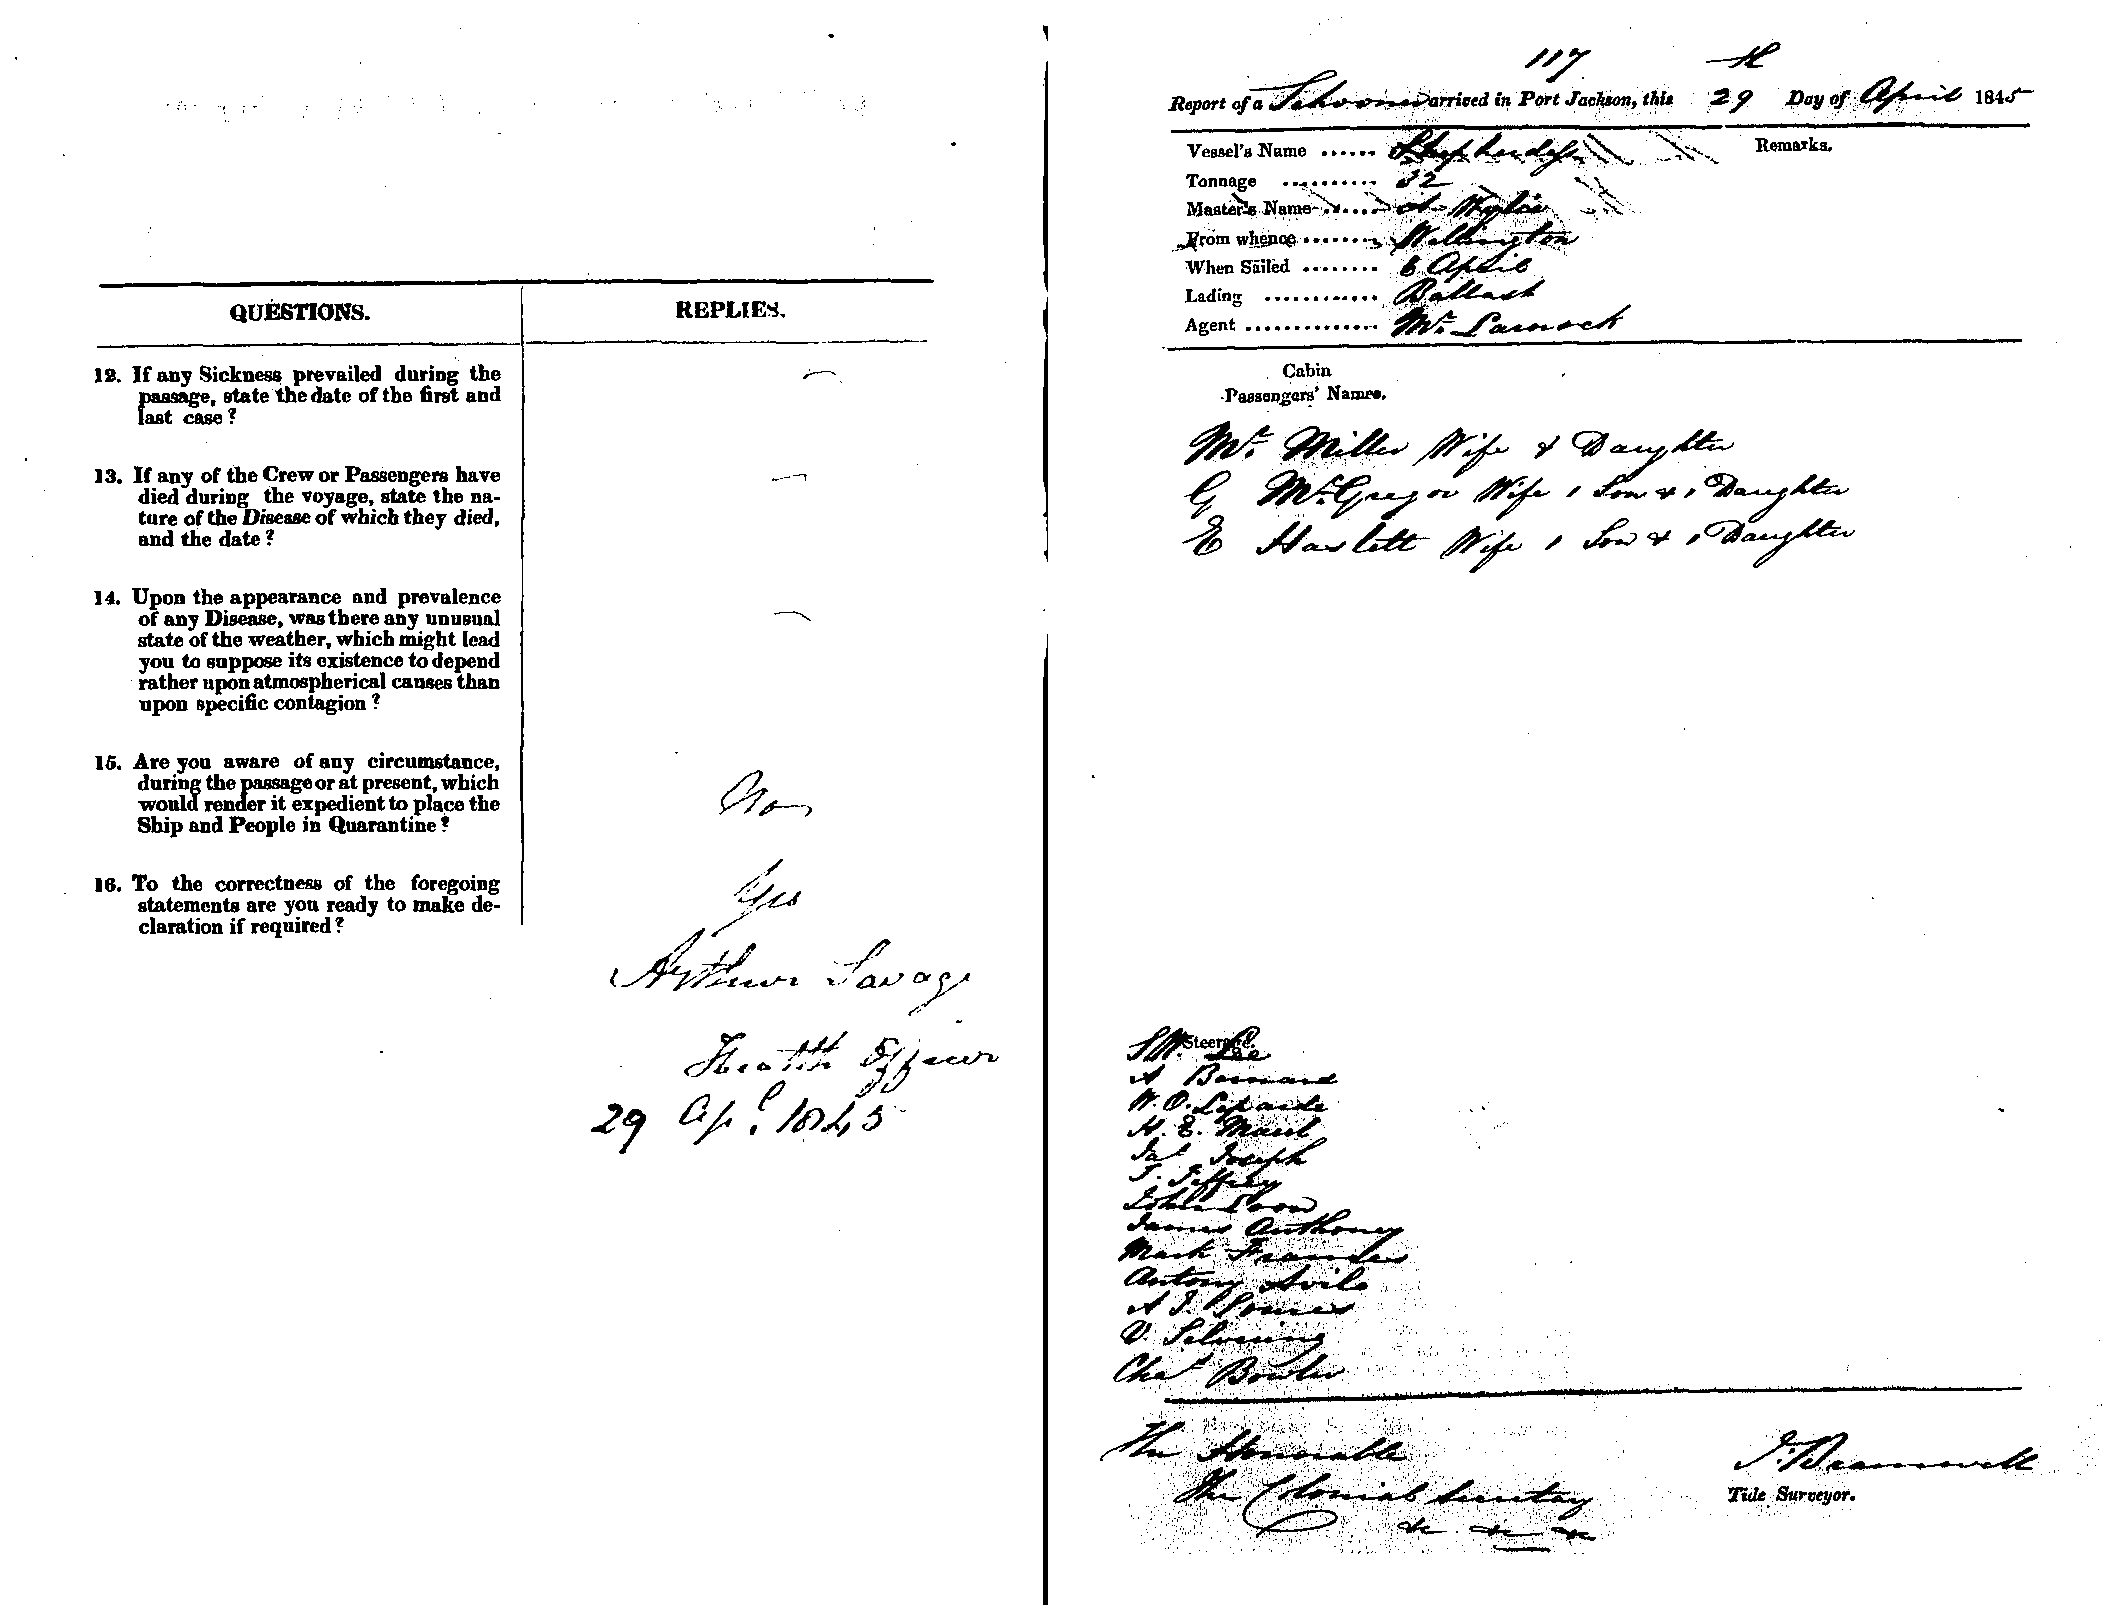 QUESTIONS.
REPLIES.
12. If any Sickness prevailed during the
passage, state the date of the first and
last case?
13. If any of the Crew or Passengers have
died during the voyage, state the na-
ture of the Disease of which they died,
and the date?
14. Upon the appearance and prevalence
of any Disease, was there any unusual
state of the weather, which might lead
you to suppose its existence to depend
rather upon atmospherical causes than
upon specific contagion?
15. Are you aware of any circumstance,
during the passage or at present, which
would render it expedient to place the
Ship and People in Quarantine?
No
16. To the correctness of the foregoing
statements are you ready to make de-
claration if required?
Yes
Arthur Savage
Health Officer
29 Apl. 1845
117
Report of a Schooner arrived in Port Jackson, this 29th Day of April 1845
Vessel's Name ...... Shepherdess
Remarks.
Tonnage .......... 32
Master's Name ....... A Wylie
From whence ........ Wellington
When Sailed ........ 6 April
Lading ............ Ballast
Agent .............. Mr. Larnock
Cabin
Passengers' Names.
Mr. Miller Wife & Daughter
G McGregor Wife 1 Son & 1 Daughter
E Haslett Wife 1 Son & 1 Daughter
Steerage.
S.W. Lee
A Bernard
W. O.
H. E.
Jas Joseph
T. Jeffrey
John
James Anthoney
Mark Frances
Antony Avila
A J.
V.
Chas Bowler
The Honorable
The Colonial Secretary
&c &c &c
J. Bramwell
Tide Surveyor.